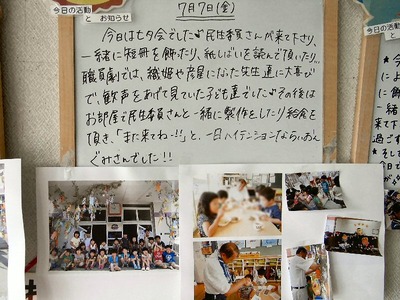 今日の活動
と お知らせ
7月7日(金)
今日は七夕会でした♪民生委員さんが来て下さり、
一緒に短冊を飾ったり、紙しばいを読んで頂いたり…
職員劇では、織姫や彦星になった先生達に大喜び
で、歓声をあげて見ていた子ども達でした♪その後は
お部屋で民生委員さんと一緒に製作をしたり給食を
頂き、「また来てね!!」と、一日ハイテンションならいおんぐみさんでした!!
今日の
と お